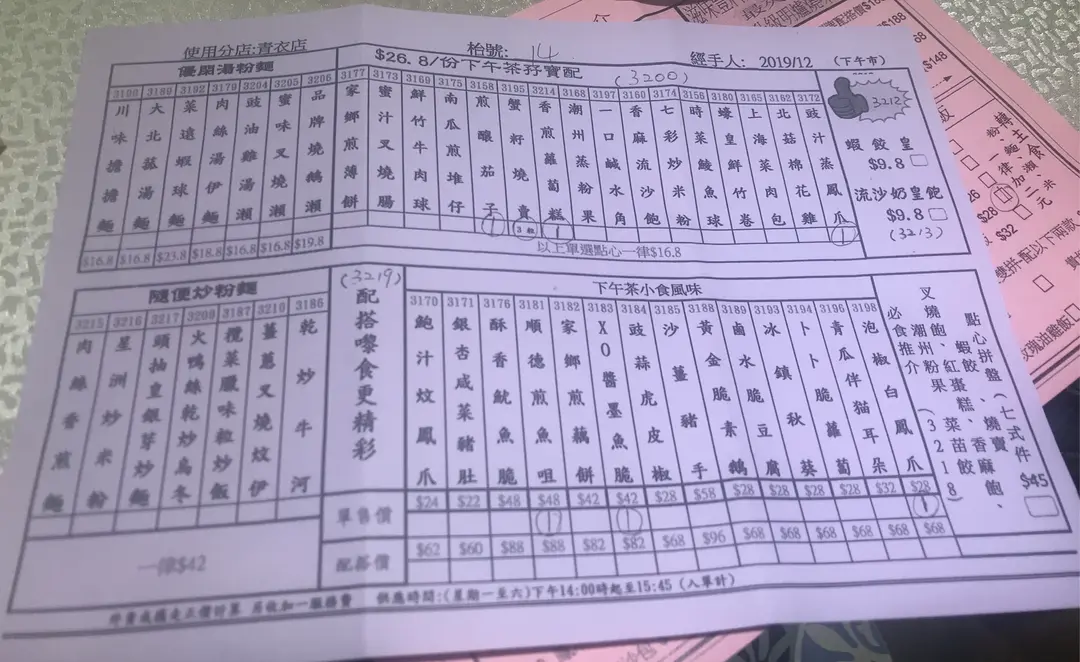 使用分店:青衣店
枱號: 14
經手人: 2019/12 (下午市)
優閒湯粉麵
$26.8/份下午茶孖寶配 (3200)
3190 川味擔擔麵 $16.8
3189 大北菇湯麵 $16.8
3192 菜遠蝦球麵 $23.8
3179 肉絲湯伊麵 $18.8
3204 豉油雞湯瀨 $16.8
3205 蜜味叉燒瀨 $16.8
3206 品牌燒鵝瀨 $19.8
3177 家鄉煎薄餅
3173 蜜汁叉燒腸
3169 鮮竹牛肉球
3175 南瓜煎堆仔
3158 煎釀茄子 1
3195 蟹籽燒賣
3214 香煎蘿蔔糕 1
3168 潮州蒸粉果
3197 一口鹹水角
3160 香麻流沙飽
3174 七彩炒米粉
3156 時菜鯪魚球
3180 蠔皇鮮竹卷
3165 上海菜肉包
3162 北菇棉花雞
3172 豉汁蒸鳳爪 1
以上單選點心一律$16.8
3212
蝦餃皇
$9.8
流沙奶皇飽
$9.8
(3213)
隨便炒粉麵
3215 肉絲香煎麵
3216 星洲炒米粉
3217 頭抽皇銀芽炒麵
3209 大鴨絲乾炒烏冬
3187 欖菜臘味粒炒飯
3210 薑蔥叉燒炆伊
3186 乾炒牛河
一律$42
(3219)
配搭嚟食更精彩
下午茶小食風味
單售價
配搭價
3170 鮑汁炆鳳爪 $24 $62
3171 銀杏咸菜豬肚 $22 $60
3176 酥香魷魚脆 $48 $88
3181 順德煎魚咀 $48 1 $88
3182 家鄉煎藕餅 $42 $82
3183 XO醬墨魚脆 $42 1 $82
3184 豉蒜虎皮椒 $28 $68
3185 沙薑豬手 $58 $96
3188 黃金脆素鵝 $28 $68
3189 鹵水脆豆腐 $28 $68
3193 冰鎮秋葵 $28 $68
3194 卜卜脆蘿蔔 $28 $68
3196 青瓜伴猫耳朵 $32 $68
3198 泡椒白鳳爪 $28 1 $68
點心拼盤(七式件
蝦餃、燒賣、香麻飽、
叉燒飽、紅棗糕、菜苗餃
潮州粉果 (3218)
必食推介
$45
供應時間:(星期一至六)下午14:00時起至15:45 (入單計)
轉主食加瀨、米
粉、麵一律加二元
$28
$32
雙拼-配以下兩款
玫瑰油雞飯
$188
$148